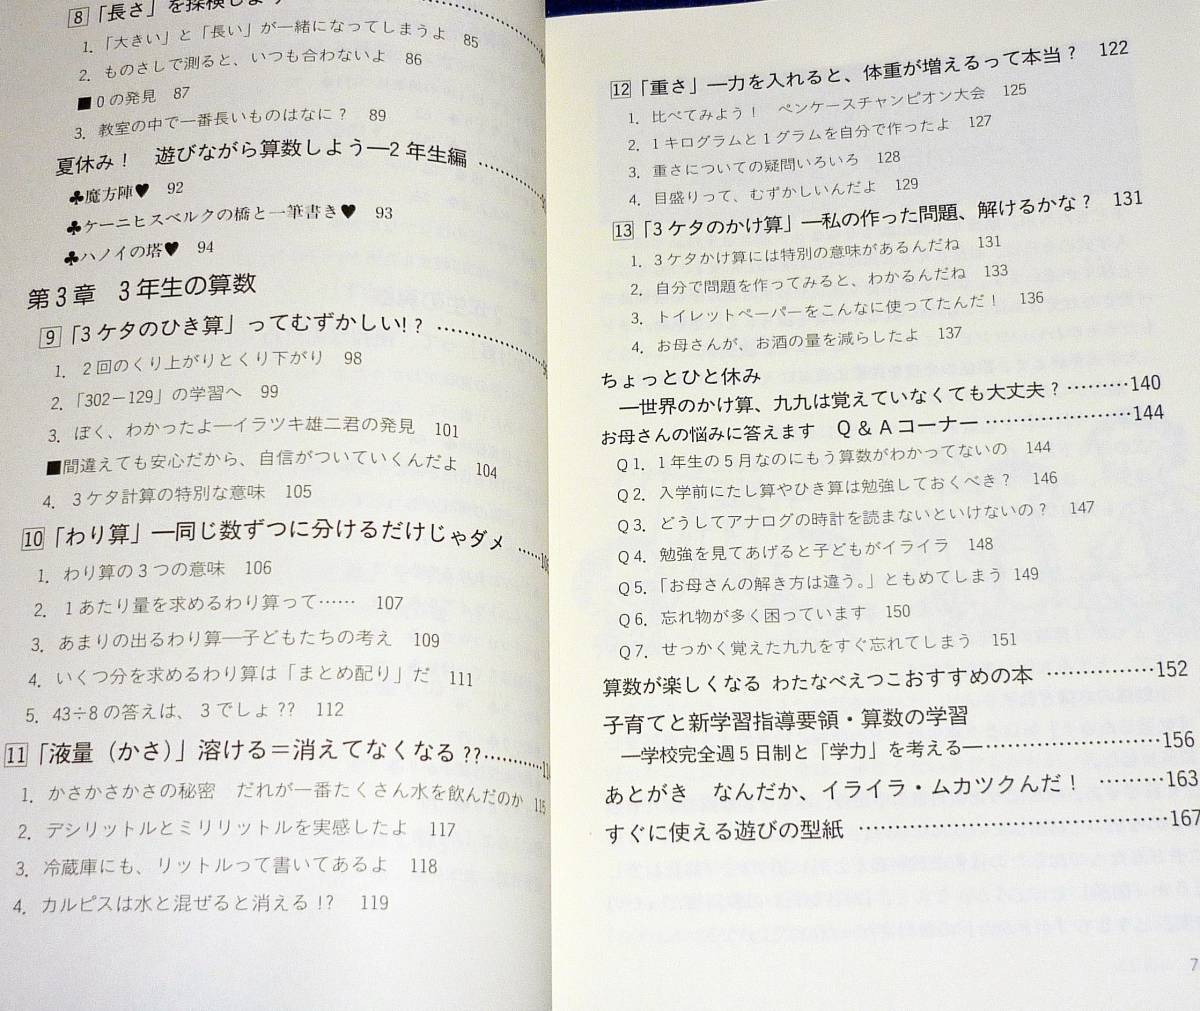 8 「長さ」を探検しよう
1. 「大きい」と「長い」が一緒になってしまうよ 85
2. ものさしで測ると、いつも合わないよ 86
■0の発見 87
3. 教室の中で一番長いものはなに? 89
夏休み! 遊びながら算数しよう―2年生編 ………
♣魔方陣♥ 92
♣ケーニヒスベルクの橋と一筆書き♥ 93
♣ハノイの塔♥ 94
第3章 3年生の算数
9 「3ケタのひき算」ってむずかしい!? ………
1. 2回のくり上がりとくり下がり 98
2. 「302−129」の学習へ 99
3. ぼく、わかったよ―イラツキ雄二君の発見 101
■間違えても安心だから、自信がついていくんだよ 104
4. 3ケタ計算の特別な意味 105
10 「わり算」―同じ数ずつに分けるだけじゃダメ ……
1. わり算の3つの意味 106
2. 1あたり量を求めるわり算って…… 107
3. あまりの出るわり算―子どもたちの考え 109
4. いくつ分を求めるわり算は「まとめ配り」だ 111
5. 43÷8の答えは、3でしょ?? 112
11 「液量(かさ)」溶ける=消えてなくなる??………
1. かさかさかさの秘密 だれが一番たくさん水を飲んだのか 115
2. デシリットルとミリリットルを実感したよ 117
3. 冷蔵庫にも、リットルって書いてあるよ 118
4. カルピスは水と混ぜると消える!? 119
12 「重さ」―力を入れると、体重が増えるって本当? 122
1. 比べてみよう! ペンケースチャンピオン大会 125
2. 1キログラムと1グラムを自分で作ったよ 127
3. 重さについての疑問いろいろ 128
4. 目盛りって、むずかしいんだよ 129
13 「3ケタのかけ算」―私の作った問題、解けるかな? 131
1. 3ケタかけ算には特別の意味があるんだね 131
2. 自分で問題を作ってみると、わかるんだね 133
3. トイレットペーパーをこんなに使ってたんだ! 136
4. お母さんが、お酒の量を減らしたよ 137
ちょっとひと休み
―世界のかけ算、九九は覚えていなくても大丈夫?………140
お母さんの悩みに答えます Q&Aコーナー……………144
Q1. 1年生の5月なのにもう算数がわかってないの 144
Q2. 入学前にたし算やひき算は勉強しておくべき? 146
Q3. どうしてアナログの時計を読まないといけないの? 147
Q4. 勉強を見てあげると子どもがイライラ 148
Q5. 「お母さんの解き方は違う。」ともめてしまう 149
Q6. 忘れ物が多く困っています 150
Q7. せっかく覚えた九九をすぐ忘れてしまう 151
算数が楽しくなる わたなべえつこおすすめの本 …………152
子育てと新学習指導要領・算数の学習
―学校完全週5日制と「学力」を考える―………………156
あとがき なんだか、イライラ・ムカツクんだ! ………163
すぐに使える遊びの型紙 ………………………………167
7